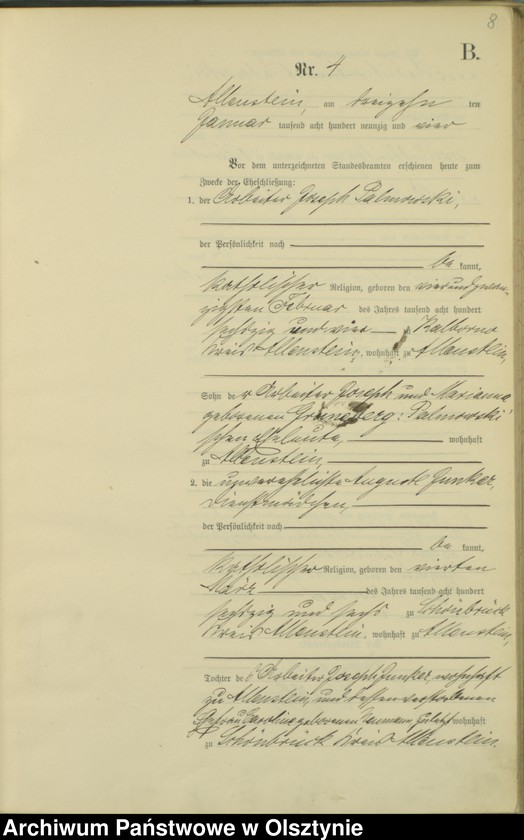 8
B.
Nr. 4
Allenstein, am dreizehn ten
Januar tausend acht hundert neunzig und vier
Vor dem unterzeichneten Standesbeamten erschienen heute zum
Zwecke der Eheschließung:
1. der Arbeiter Joseph Palmowski,
der Persönlichkeit nach
be kannt,
katholischer Religion, geboren den vierundzwan-
zigsten Februar des Jahres tausend acht hundert
sechzig und vier zu Kalborno
Kreis Allenstein, wohnhaft zu Allenstein,
Sohn der Arbeiter Joseph und Marianna
geborenen Grüneberg: Palmowski
schen Eheleute, wohnhaft
zu Allenstein,
2. die unverehelichte Auguste Junker,
Dienstmädchen,
der Persönlichkeit nach
be kannt,
katholischer Religion, geboren den vierten
März des Jahres tausend acht hundert
sechzig und sechs zu Schönbrück
Kreis Allenstein, wohnhaft zu Allenstein,
Tochter des Arbeiter Joseph Junker, wohnhaft
zu Allenstein, und dessen verstorbenen
Ehefrau Caroline geborenen zuletzt wohnhaft
zu Schönbrück Kreis Allenstein.
Archiwum Państwowe w Olsztynie